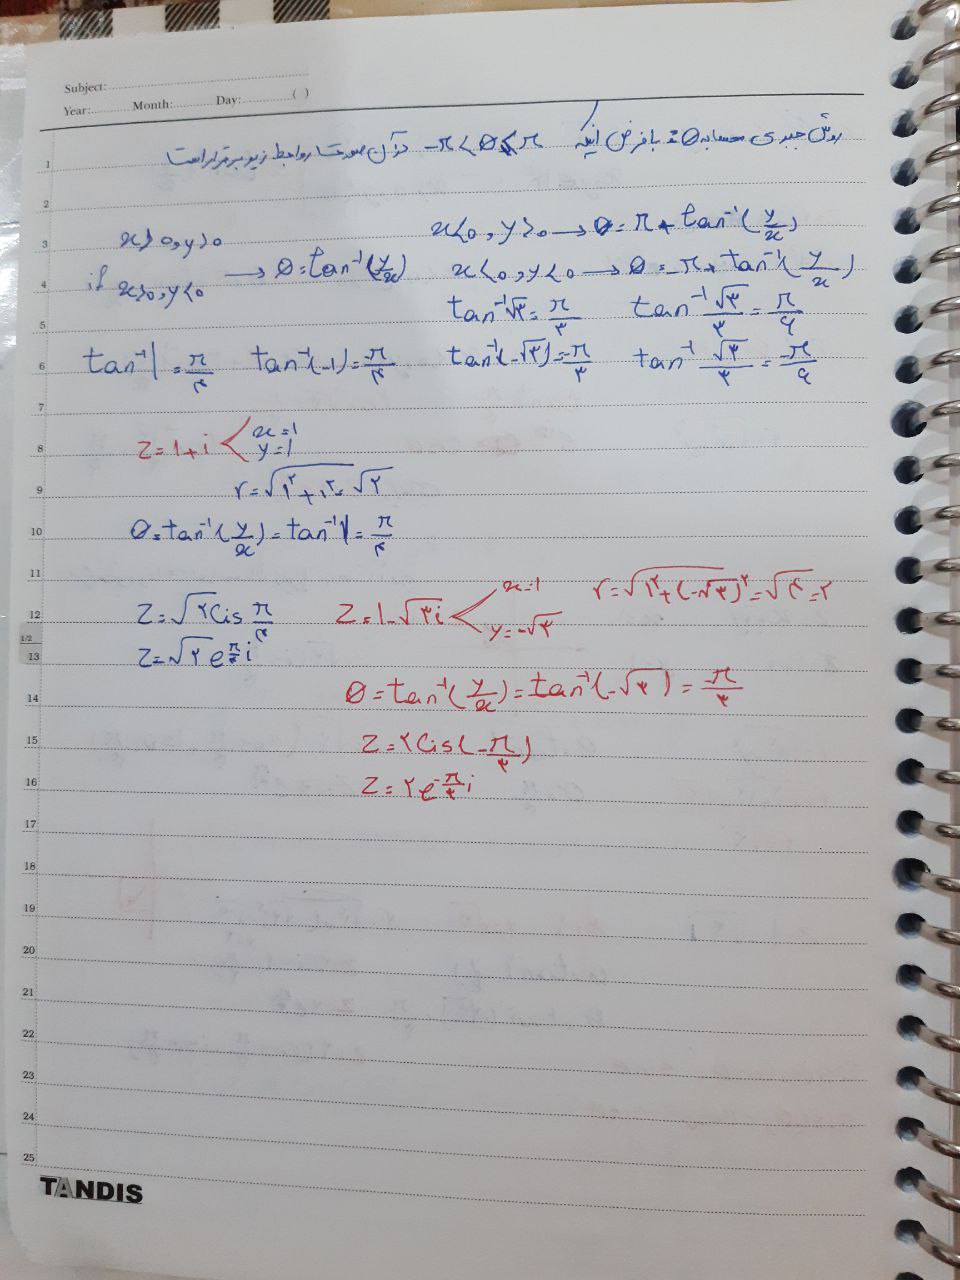 Subject:
Year: Month: Day: ( )
روش جبری محاسبه θ: با فرض اینکه -π < θ ≤ π در آن صورت روابط زیر برقرار است
x>0, y>0
if x>0, y<0 → θ = tan⁻¹(y/x)
x<0, y>0 → θ = π + tan⁻¹(y/x)
x<0, y<0 → θ = -π + tan⁻¹(y/x)
tan⁻¹√۳ = π/۳ tan⁻¹ √۳/۳ = π/۶
tan⁻¹1 = π/۴ tan⁻¹(-1) = -π/۴ tan⁻¹(-√۳) = -π/۳ tan⁻¹ √۳/۳ = -π/۶
z = 1+i x=1
y=1
r = √1²+1² = √۲
θ = tan⁻¹(y/x) = tan⁻¹1 = π/۴
z = √۲ Cis π/۴
z = √۲ e^π/۴ i
z = 1-√۳i x=1
y=-√۳
r = √1²+(-√۳)² = √۴ = ۲
θ = tan⁻¹(y/x) = tan⁻¹(-√۳) = -π/۳
z = ۲Cis(-π/۳)
z = ۲e^-π/۳ i
1
2
3
4
5
6
7
8
9
10
11
12
1/2
13
14
15
16
17
18
19
20
21
22
23
24
25
TANDIS